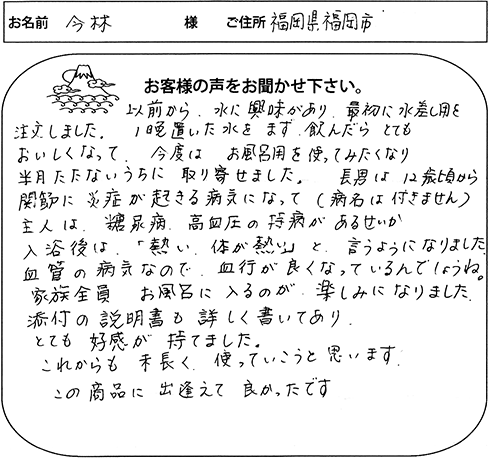 お名前 今林 様 ご住所 福岡県福岡市
お客様の声をお聞かせ下さい。
以前から、水に興味があり、最初に水差し用を
注文しました。 1晩置いた水を まず、飲んだら とても
おいしくなって、 今度は お風呂用を使ってみたくなり
半月たたないうちに 取り寄せました。 長男は 12歳頃から
関節に 炎症が起きる病気になって (病名は付きません)
主人は、糖尿病、高血圧の持病があるせいか
入浴後は、「熱い、体が熱い」と、言うようになりました。
血管の病気なので、血行が良くなっているんでしょうね。
家族全員 お風呂に入るのが、楽しみになりました。
添付の説明書も 詳しく書いてあり、
とても 好感が 持てました。
これからも 末長く、使っていこうと思います。
この商品に 出逢えて 良かったです